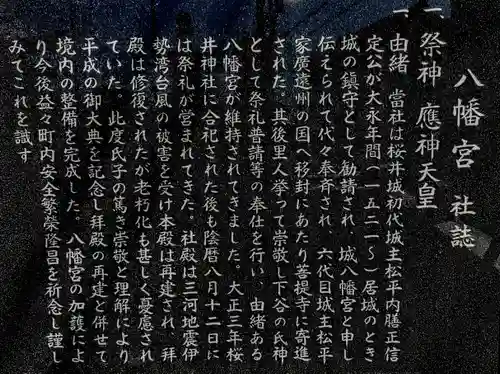 八幡宮 社誌
一、祭神 應神天皇
一、由緒 當社は桜井城初代城主松平内膳正信
定公が大永年間（一五二一～）居城のとき
城の鎮守として勧請され、城八幡宮と申し
伝えられて代々奉斉され、六代目城主松平
家廣遠州の国へ移封にあたり菩提寺に寄進
された。其後里人挙って崇敬し下谷の氏神
として祭礼普請等の奉仕を行い、由緒ある
八幡宮が維持されてきました。大正三年桜
井神社に合祀された後も陰暦八月十二日に
は祭礼が営まれてきた。社殿は三河地震伊
勢湾台風の被害を受け本殿は再建され、拜
殿は修復されたが老朽化も甚しく憂慮され
ていた。此度氏子の篤き崇敬と理解により
平成の御大典を記念し拜殿の再建と併せて
境内の整備を完成した。八幡宮の加護によ
り今後益々町内安全繁榮隆昌を祈念し謹し
みてこれを識す